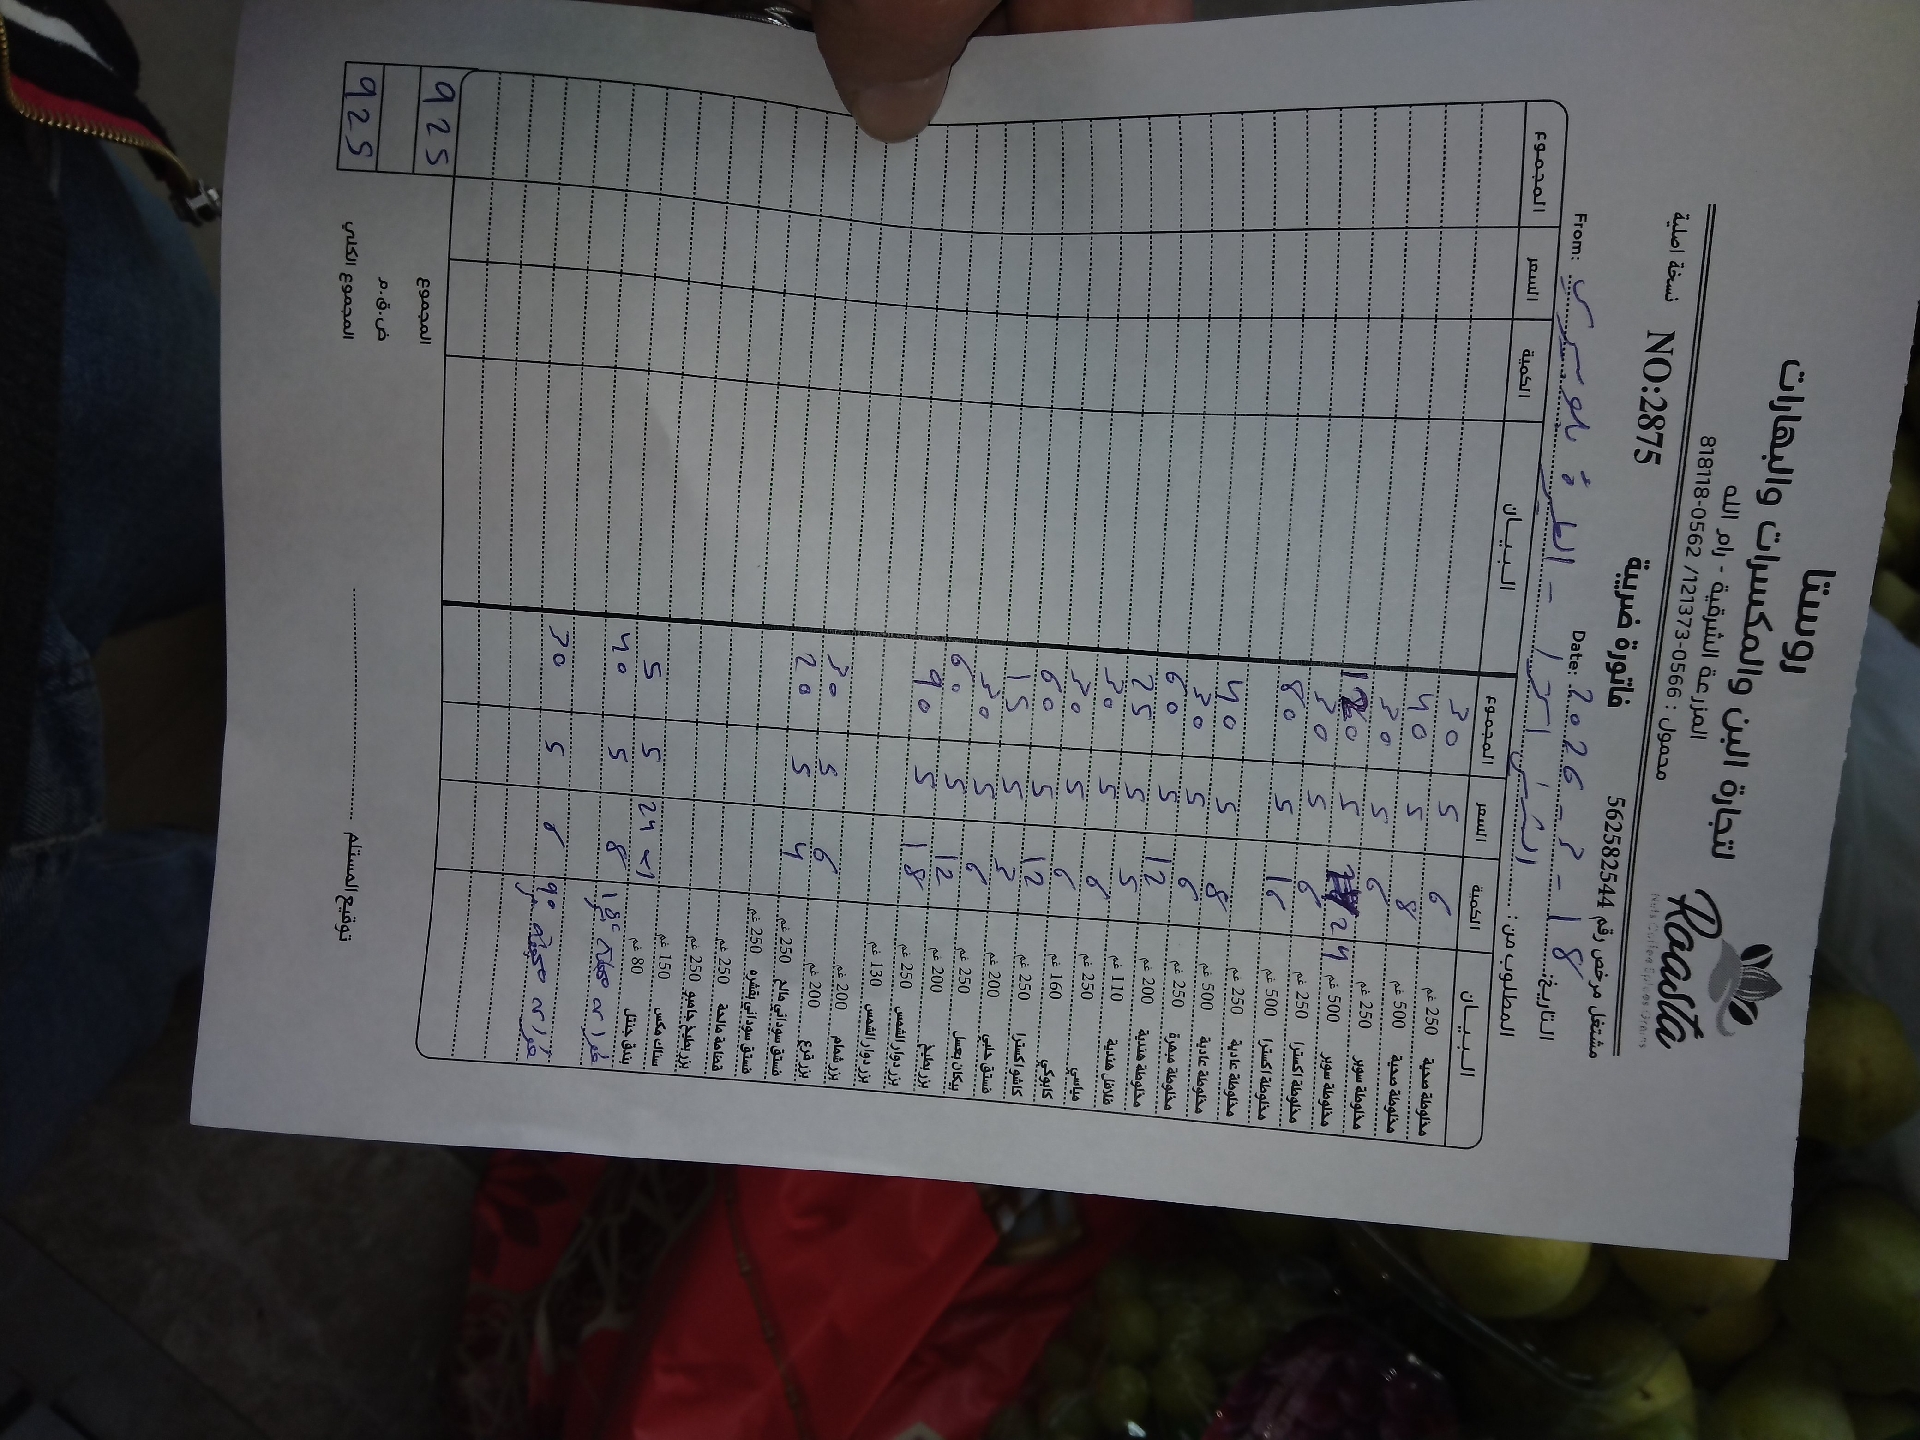 روستا
لتجارة البن والمكسرات والبهارات
المزرعة الشرقية - رام الله
محمول : 0566-121373/ 0562-818118
Raasta
مشتغل مرخص رقم 562582544
فاتورة ضريبية
NO:2875
نسخة اصلية
التاريخ: 18 - 3 - 2026 Date:
المطلوب من: From:
البيان الكمية السعر المجموع البيان الكمية السعر المجموع
مخلوطة صحية 250 غم 6 5 30
مخلوطة صحية 500 غم 8 5 40
مخلوطة سوبر 250 غم 6 5 30
مخلوطة سوبر 500 غم 24 5 120
مخلوطة اكسترا 250 غم 6 5 30
مخلوطة اكسترا 500 غم 16 5 80
مخلوطة عادية 250 غم
مخلوطة عادية 500 غم 8 5 40
مخلوطة مبهرة 250 غم 6 5 30
مخلوطة هندية 200 غم 12 5 60
فلافل هندية 110 غم 5 5 25
مياسي 250 غم 6 5 30
كابوكي 160 غم 6 5 30
كاشو اكسترا 250 غم 12 5 60
فستق حلبي 200 غم 3 5 15
بيكان بعسل 250 غم 6 5 30
بزر بطيخ 200 غم 12 5 60
بزر دوار الشمس 250 غم 18 5 90
بزر دوار الشمس 130 غم
بزر شمام 200 غم
بزر قرع 200 غم 6 5 30
فستق سوداني مالح 250 غم 4 5 20
فستق سوداني بقشره 250 غم
قضامة مالحة 250 غم
بزر بطيخ جامبو 250 غم
سناك مكس 150 غم
بندق جنتل 80 غم 1 5 5
8 5 40
6 5 30
المجموع 925
ض.ق.م
المجموع الكلي 925
توقيع المستلم